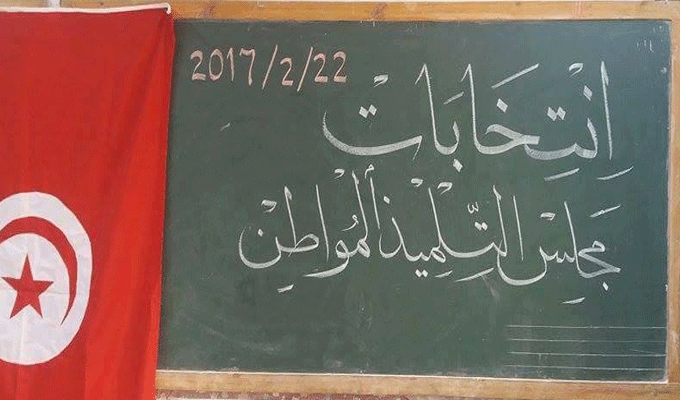 2017/2/22
اِنْتِخَابَاتْ
مَجْلِسْ التِّلْمِيذْ اَلْمُوَاطِنْ